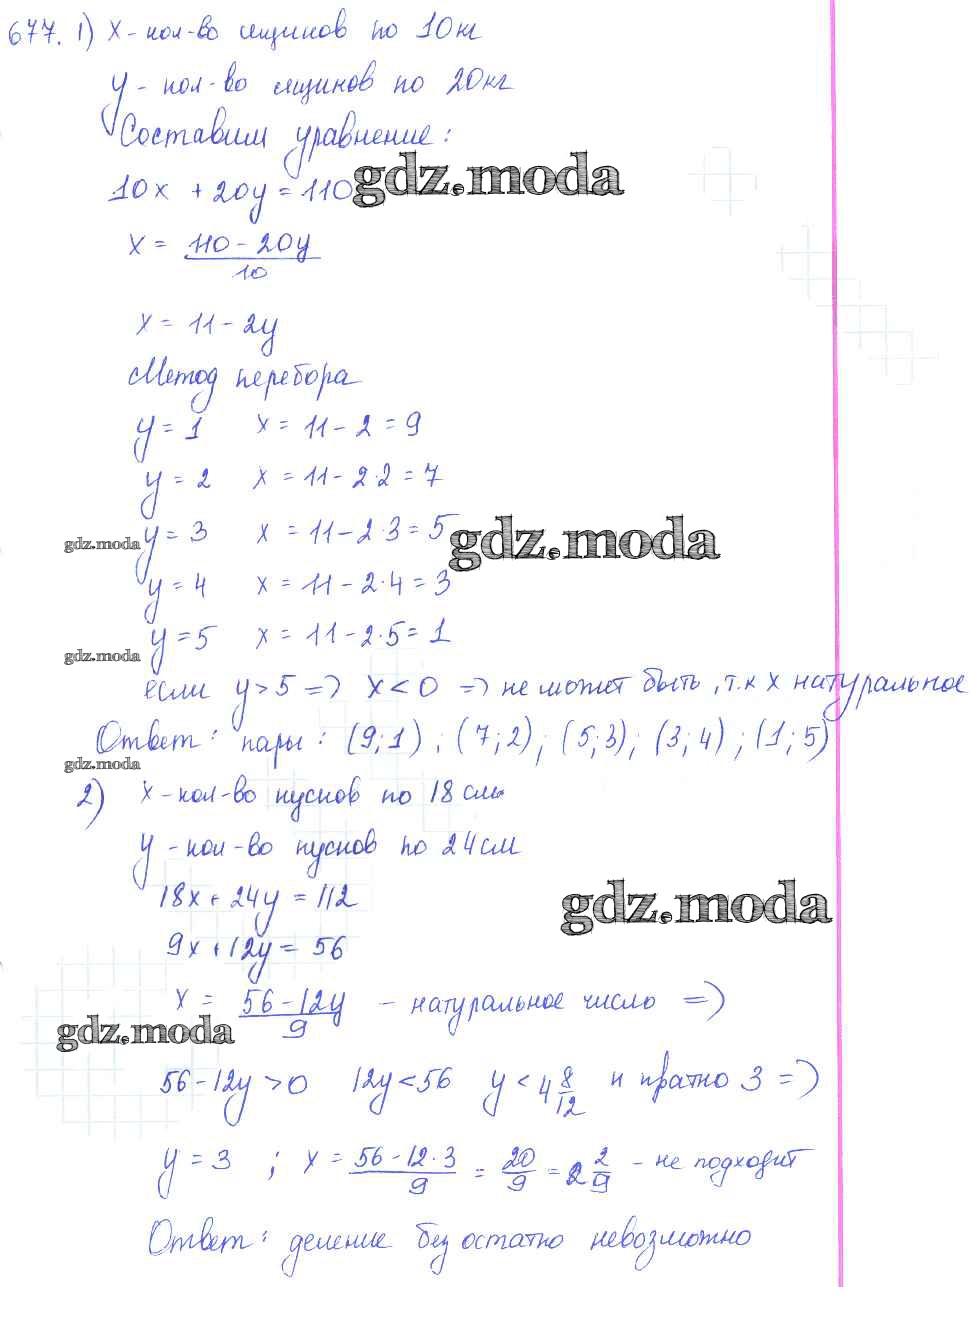 677. 1) x - кол-во ящиков по 10кг
y - кол-во ящиков по 20кг
Составим уравнение:
10x + 20y = 110
gdz.moda
x = 110 - 20y / 10
x = 11 - 2y
Метод перебора
y = 1 x = 11 - 2 = 9
y = 2 x = 11 - 2·2 = 7
gdz.moda y = 3 x = 11 - 2·3 = 5 gdz.moda
y = 4 x = 11 - 2·4 = 3
y = 5 x = 11 - 2·5 = 1
gdz.moda
если y > 5 => x < 0 => не может быть, т.к x натуральное
Ответ: пары: (9;1); (7;2); (5;3); (3;4); (1;5)
gdz.moda
2) x - кол-во кусков по 18см
y - кол-во кусков по 24см
18x + 24y = 112
gdz.moda
9x + 12y = 56
x = 56 - 12y / 9 - натуральное число =>
gdz.moda
56 - 12y > 0 12y < 56 y < 4 8/12 и кратно 3 =>
y = 3 ; x = 56 - 12·3 / 9 = 20/9 = 2 2/9 - не подходит
Ответ: деление без остатка невозможно